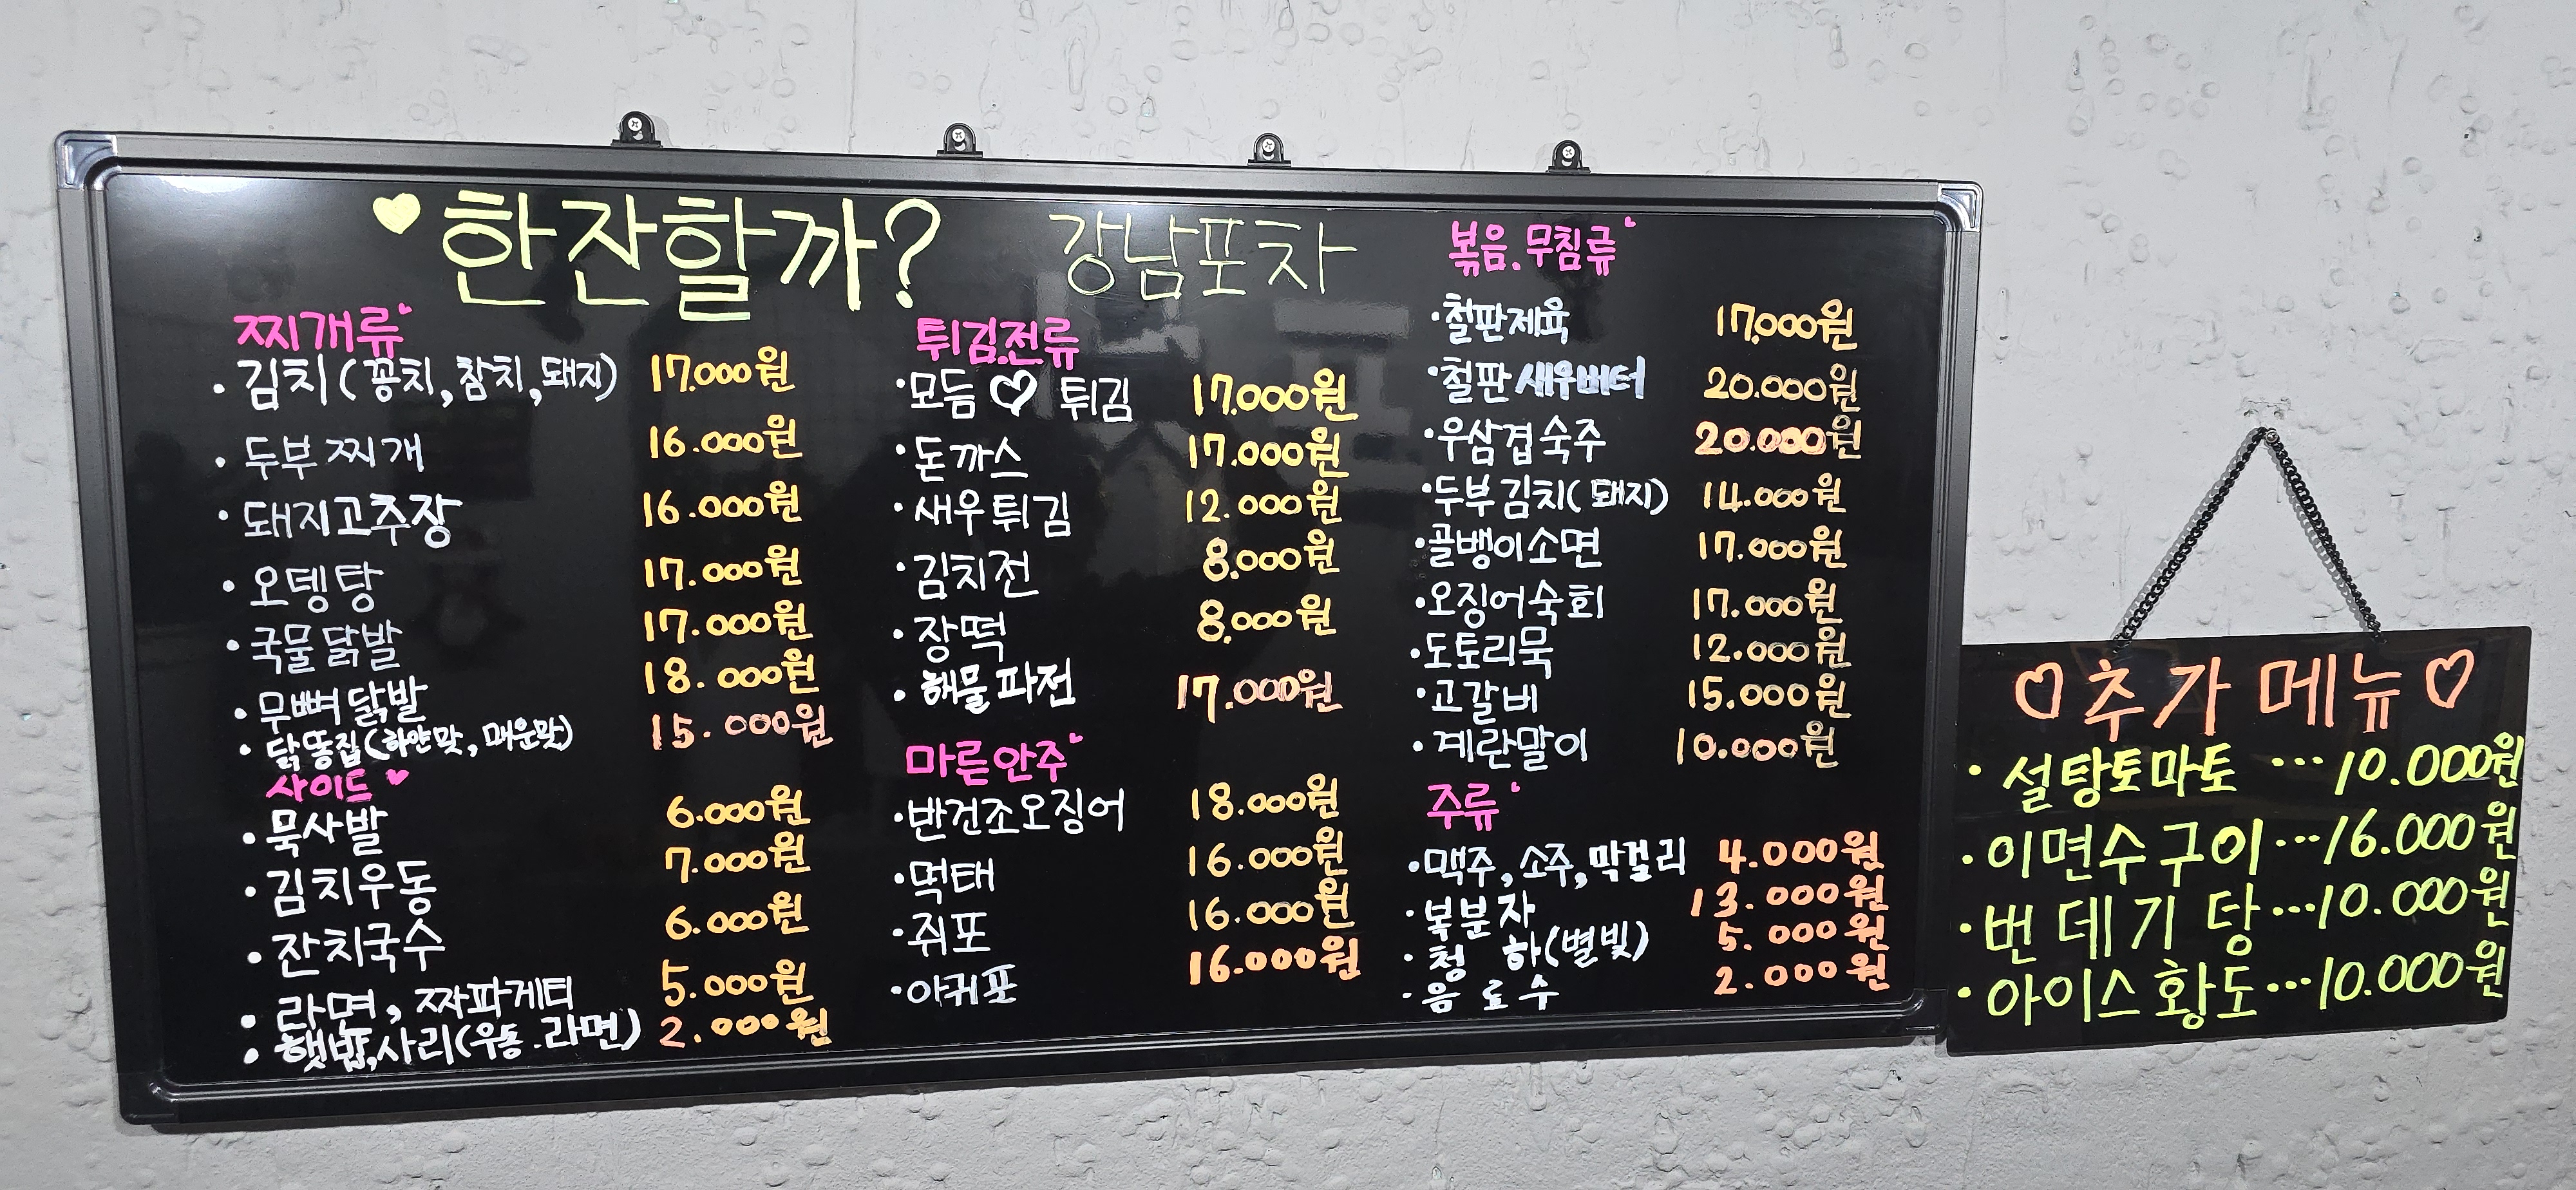 한잔할까? 강남포차
찌개류
· 김치(꽁치,참치,돼지) 17.000원
· 두부찌개 16.000원
· 돼지고추장 16.000원
· 오뎅탕 17.000원
· 국물닭발 17.000원
· 무뼈닭발 18.000원
· 닭똥집(하얀맛, 매운맛) 15.000원
사이드
· 묵사발 6.000원
· 김치우동 7.000원
· 잔치국수 6.000원
· 라면, 짜파게티 5.000원
· 햇밥,사리(우동.라면) 2.000원
튀김.전류
·모듬♡튀김 17.000원
·돈까스 17.000원
·새우튀김 12.000원
·김치전 8.000원
·장떡 8.000원
·해물파전 17.000원
마른안주
·반건조오징어 18.000원
·먹태 16.000원
·쥐포 16.000원
·아귀포 16.000원
볶음.무침류
·철판제육 17,000원
·철판새우버터 20.000원
·우삼겹숙주 20.000원
·두부김치(돼지) 14.000원
·골뱅이소면 17.000원
·오징어숙회 17.000원
·도토리묵 12.000원
·고갈비 15.000원
·계란말이 10.000원
주류
·맥주, 소주,막걸리 4.000원
·복분자 13.000원
·청 하(별빛) 5.000원
·음료수 2.000원
♡추가 메뉴♡
· 설탕토마토 ···10.000원
· 이면수구이···16.000원
· 번데기 탕···10.000원
· 아이스황도···10.000원